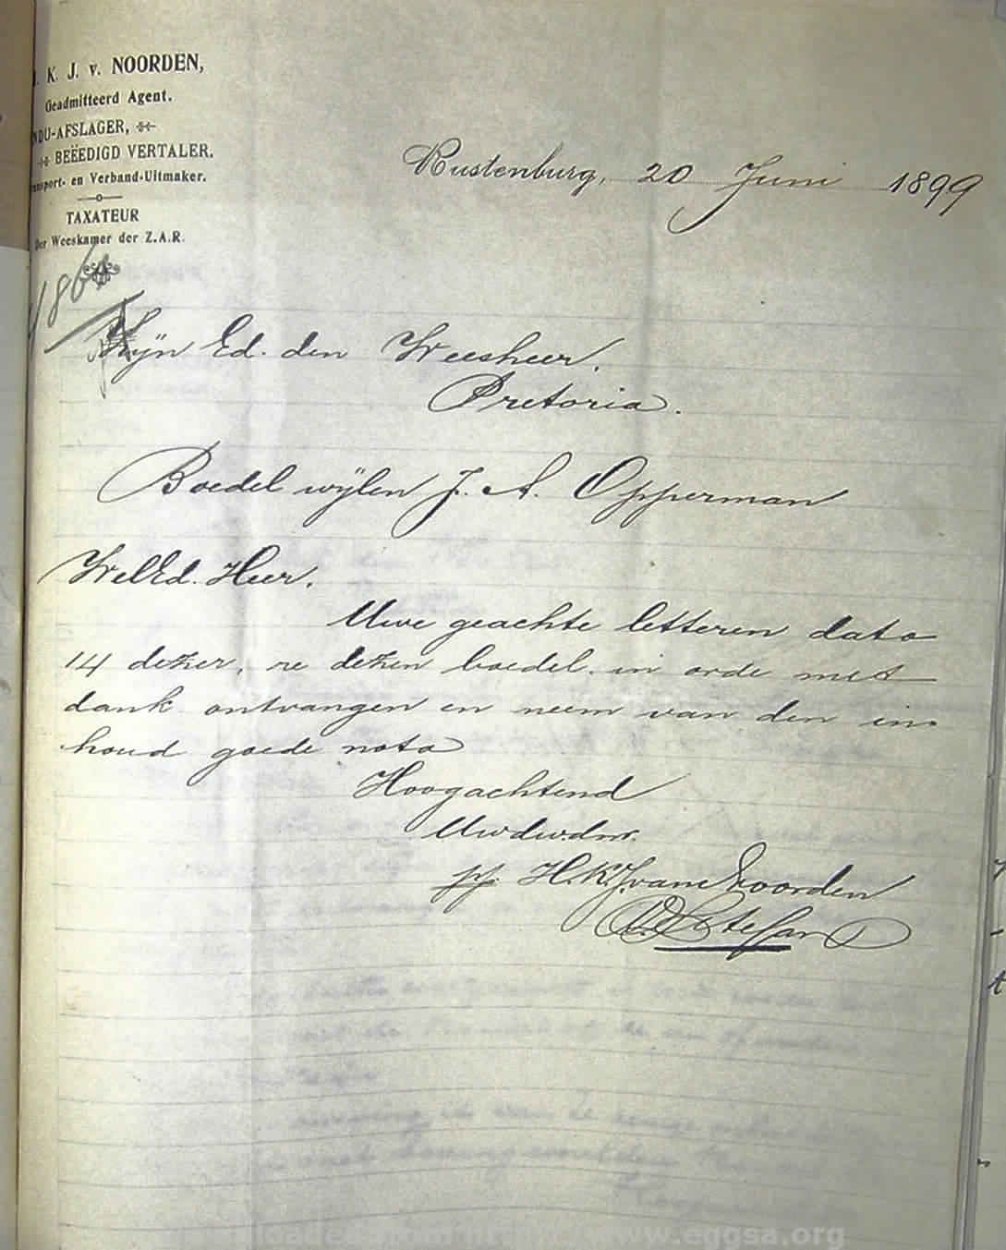 K. J. v. NOORDEN,
Geadmitteerd Agent.
NDU-AFSLAGER,
BEËEDIGD VERTALER.
port- en Verband-Uitmaker.
TAXATEUR
der Weeskamer der Z.A.R.
Rustenburg, 20 Juni 1899
Zijn Ed. den Weesheer.
Pretoria.
Boedel wijlen J. A. Opperman
WelEd. Heer.
Uwe geachte letteren dato
14 dezer, re dezen boedel in orde met
dank ontvangen en neem van den in-
houd goede nota
Hoogachtend
Uwdwdnr.
pp. H.K.J. van Noorden
www.eggsa.org